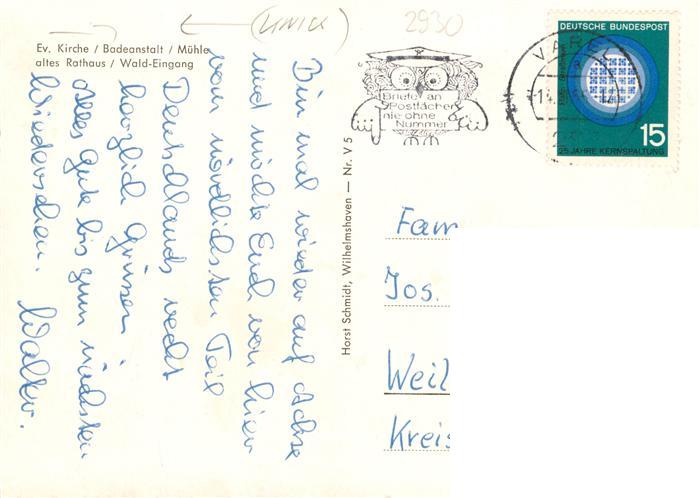 (LINKS)
2930
Ev. Kirche / Badeanstalt / Mühle
altes Rathaus / Wald-Eingang
Bin mal wieder auf Achse
und möchte Euch von hier
vom nördlichsten Teil
Deutschlands recht
herzlich Grüssen
Alles Gute bis zum nächsten
Wiedersehen. Walter.
Horst Schmidt, Wilhelmshaven — Nr. V 5
Briefe an
Postfächer
nie ohne
Nummer
VAREL
DEUTSCHE BUNDESPOST
15
25 JAHRE KERNSPALTUNG
Fam
Jos.
Weil
Kreis